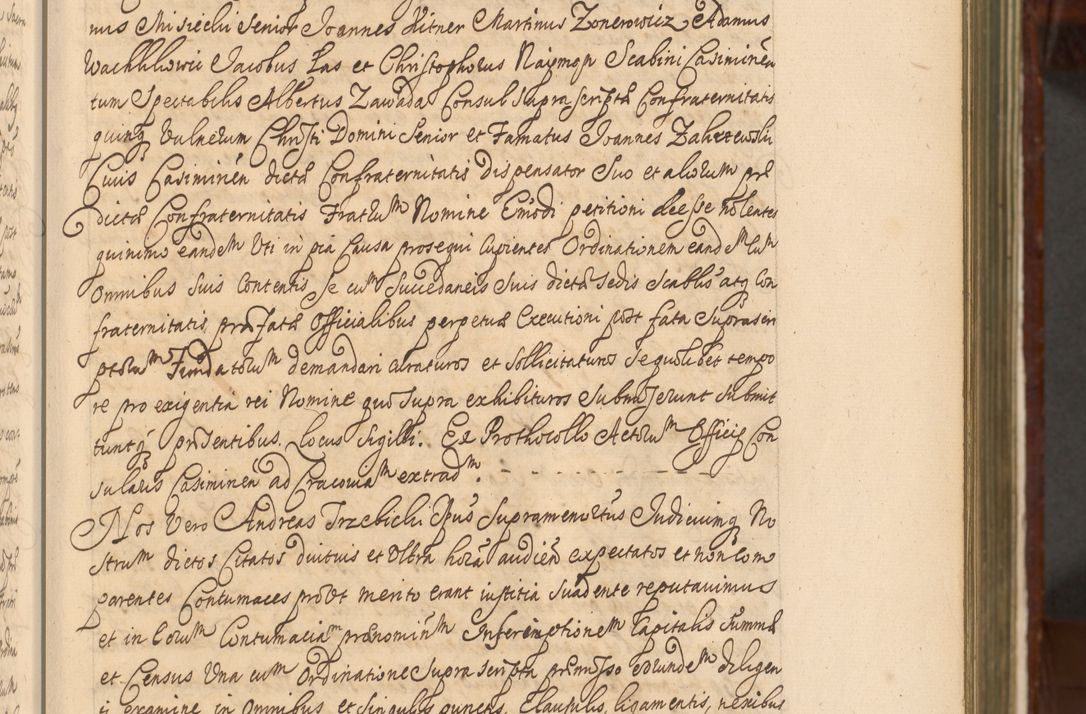 nus Misiecki Senior Joannes Kitner Martinus Zonerowicz Adamus
Wachlilowicz Jacobus Las et Christophorus Naymon Scabini Casiminēn
tum Spectabilis Albertus Zawada Consul Supra scriptæ Confraternitatis
quinq Vulnerum Christi Domini Senior et Famatus Joannes Zakrzewski
Civis Casiminēn dictæ Confraternitatis dispensator Suo et aliorum præ
dictæ Confraternitatis Fratrum Nomine Emodi petitioni deesse nolentes
quinimo eandem Uti in pia Causa prosequi cupientes Ordinationem eandem cum
Omnibus suis Contentis se cum Succedaneis Suis dictæ Sedis Scablis atq Con
fraternitatis præfatæ Officialibus perpetuæ Executioni post fata Suprascri
ptorum Fundatorum demandari curaturos et sollicitaturos se quolibet tempo
re pro exigentia rei Nomine quo supra exhibituros Submiserunt Submit
tuntq præsentibus. Locus Sigilli. Ex Prothocollo Actorum Officij Con
sularis Casiminēn ad Cracoviam extradm.
Nos Vero Andreas Trzebicki Epus Supramemortus Judiciumq No
strum dictos Citatos diutius et Ultra horā audiēn expectatos et non com
parentes Contumaces prout merito erant iustitia suadente reputavimus
et in Eorum Contumaciam prænominm Inscriptionem Capitalis Summæ
et Census Una cum Ordinatione Supra scripta præmisso eorundem diligen
ti examine in Omnibus et Singulis punctis, Clausulis, ligamentis, nexibus